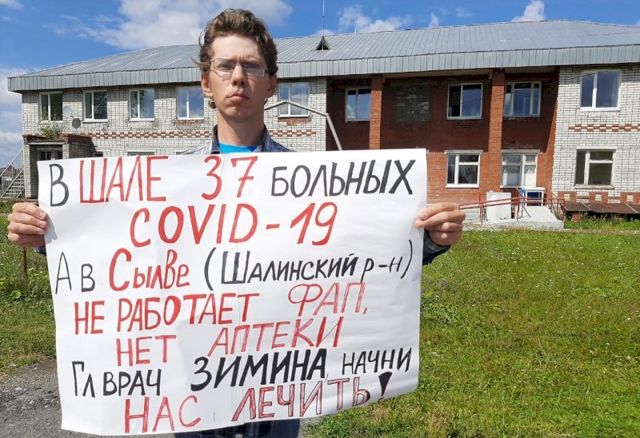 В ШАЛЕ 37 БОЛЬНЫХ
COVID-19
А в Сылве (Шалинский р-н)
НЕ РАБОТАЕТ ФАП,
НЕТ АПТЕКИ
Гл ВРАЧ ЗИМИНА, НАЧНИ
НАС ЛЕЧИТЬ!